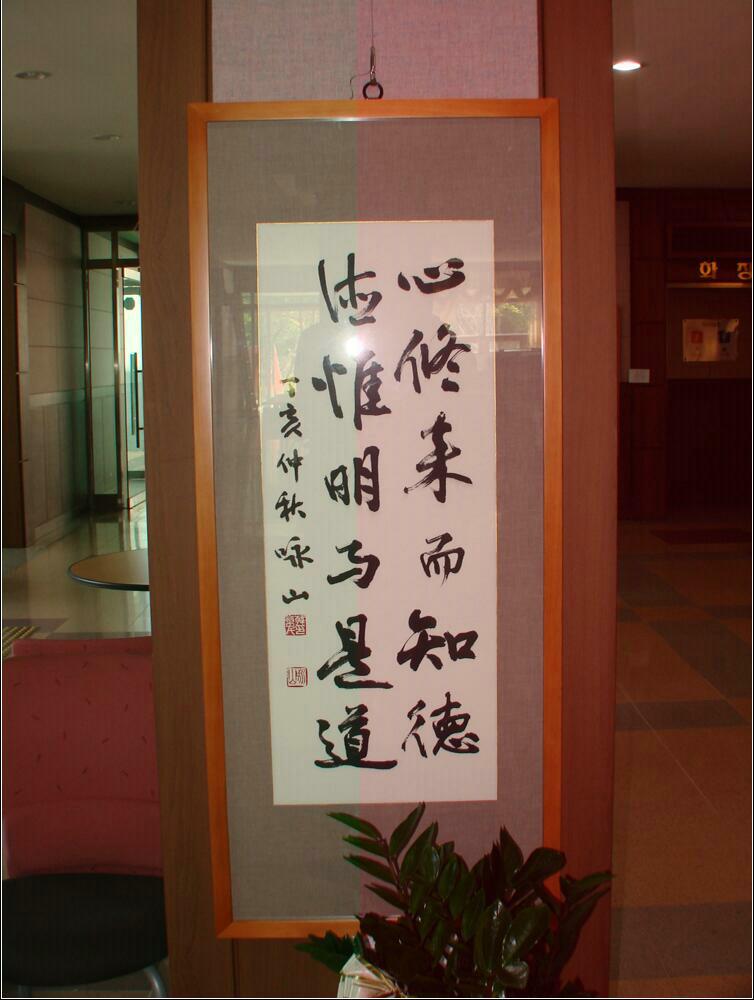 心修来而知德
德惟明与是道
丁亥仲秋 咏山
화장